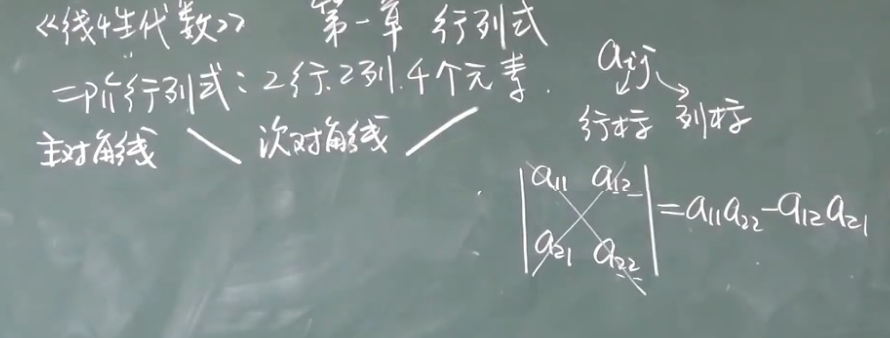 《线性代数》 第一章 行列式
二阶行列式:2行.2列.4个元素.
aij
行标 列标
主对角线 \ 次对角线 /
|a11 a12|
|a21 a22| =a11a22-a12a21